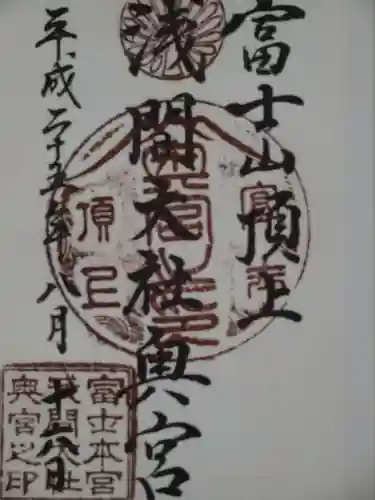 富士山頂上
浅間大社奥宮
平成二十五年八月十八日
頂上
富士本宮
浅間大社
奥宮之印